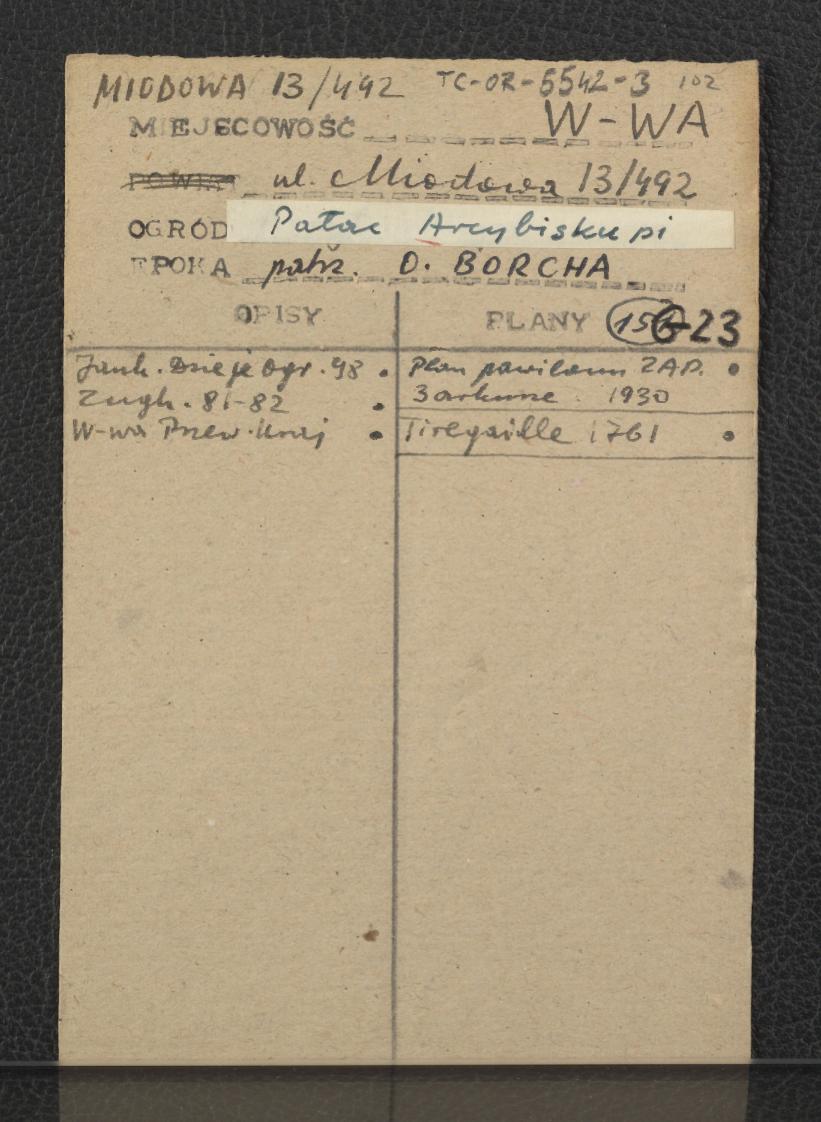 MIODOWA 13/492 TC-OR-5542-3 102
MIEJSCOWOŚĆ W-WA
POWIAT ul. Miodowa 13/492
OGRÓD Pałac Arcybiskupi
EPOKA patrz. O. BORCHA
OPISY
PLANY 15 6-23
Jank. Dzieje Ogr. 98 •
Zugh. 81-82 •
W-wa Przew. Kraj •
Plan pawilonu ZAP. •
1930
Tiregaille 1761 •